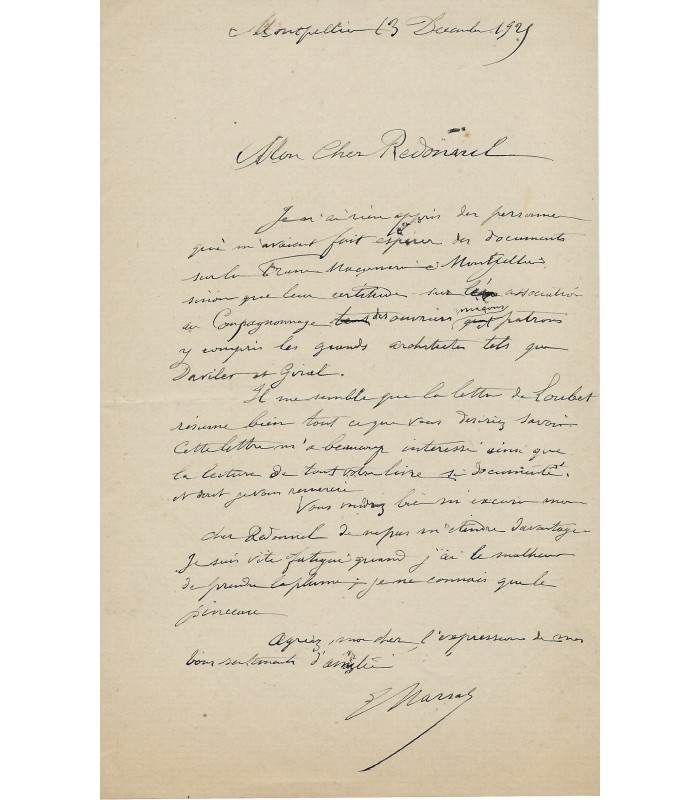 Montpellier 13 Decembre 192
Mon Cher Redonnel
Je n'ai rien appris des personnes
qui m'avaient fait espérer des documents
sur la Franc Maçonnerie à Montpellier
sinon que leur certitude sur association
du Compagnonnage des ouvriers maçons patrons
y compris les grands architectes tels que
Daviler et Giral.
Il me semble que la lettre de Loubet
résume bien tout ce que vous desiriez savoir
Cette lettre m'a beaucoup interessé ainsi que
la lecture de tout votre livre si documenté.
et dont je vous remercie
Vous voudrez bien m'excuser mon
cher Redonnel de ne pas m'étendre davantage
Je suis vite fatigué quand j'ai le malheur
de prendre la plume; je ne connais que le
pinceau
Agréez, mon cher, l'expression de mes
bons sentiments d'amitié
E Marsal